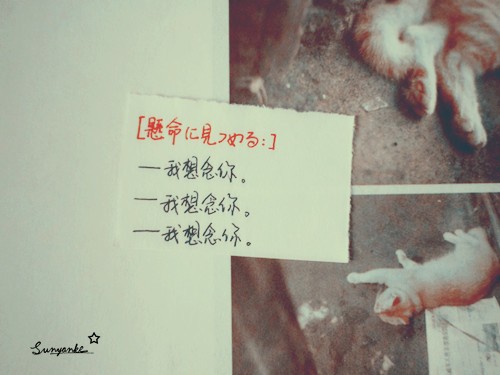 [懸命に見つめる:]
—我想念你。
—我想念你。
—我想念你。
Sunyanke